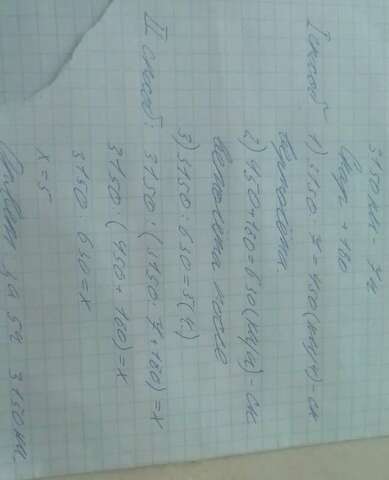 3150 км - 7 ч
Скор. + 180
I способ 1) 3150 : 7 = 450 (км/ч) - ск
2) 450+180=630 (км/ч) - ск.
после
3) 3150 : 630 = 5 (ч)
II способ: 3150 : (3150 : 7 + 180) = x
3150 : (450 + 180) = x
3150 : 630 = x
x = 5
Ответ: за 5ч 3150 км.